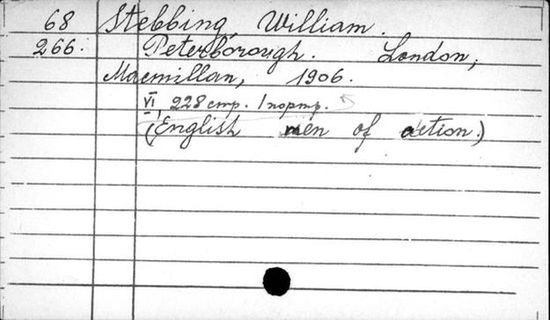 68 Stebbing, William.
266. Peterborough. London,
Macmillan, 1906.
VI, 228 стр. 1 портр.
(English men of action.)